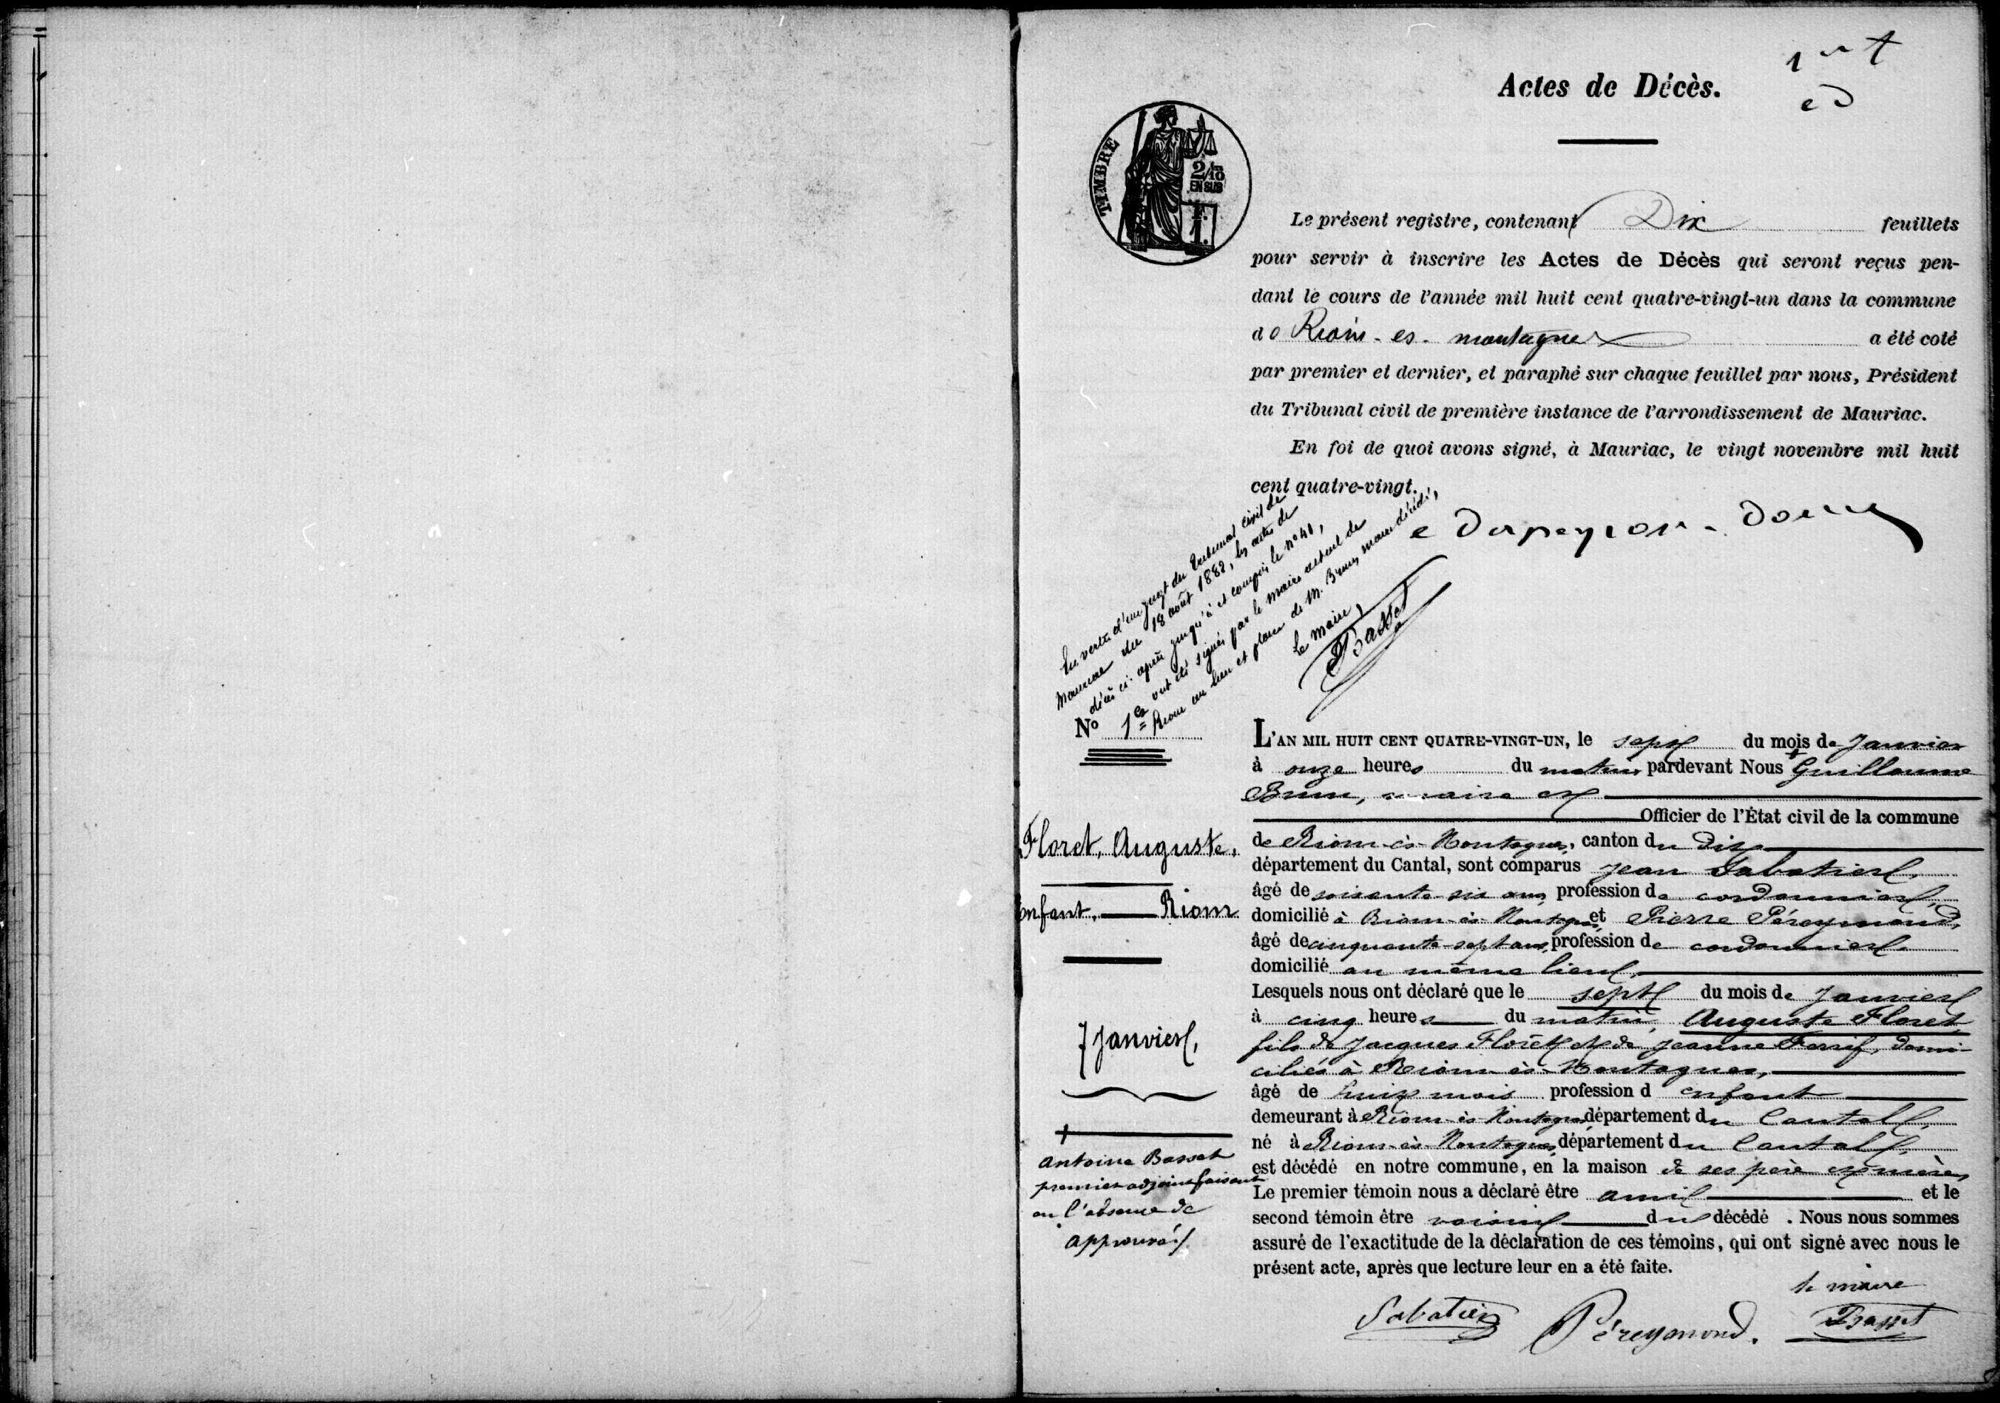 Actes de Décès.
TIMBRE
2/10
EN SUS
1F.
Le présent registre, contenant Dix feuillets
pour servir à inscrire les Actes de Décès qui seront reçus pen-
dant le cours de l'année mil huit cent quatre-vingt-un dans la commune
de Riom-es-montagnes a été coté
par premier et dernier, et paraphé sur chaque feuillet par nous, Président
du Tribunal civil de première instance de l'arrondissement de Mauriac.
En foi de quoi avons signé, à Mauriac, le vingt novembre mil huit
cent quatre-vingt.
En vertu d'un jugt du Tribunal civil de
Mauriac du 18 août 1882, les actes de
décès ci-après jusqu'à et compris le n° 41,
ont été signés par le maire actuel de
Riom au lieu et place de M. Brun, maire décédé,
Le maire,
Basset
No 1er
L'AN MIL HUIT CENT QUATRE-VINGT-UN, le sept du mois de Janvier
à onze heures du matin, pardevant Nous + Guillaume
Brun, maire et
Officier de l'État civil de la commune
de Riom-ès-Montagnes, canton du dit
département du Cantal, sont comparus Jean Sabatier,
âgé de soixante-six ans, profession de cordonnier,
domicilié à Riom-ès-Montagnes, et Pierre Péreymond,
âgé de cinquante-sept ans, profession de cordonnier
domicilié au même lieu,
Lesquels nous ont déclaré que le sept du mois de Janvier
à cinq heures du matin, Auguste Floret,
fils de Jacques Floret et de Jeanne, domi-
ciliés à Riom-ès-Montagnes,
âgé de huit mois profession d enfant
demeurant à Riom-ès-Montagnes, département du Cantal,
né à Riom-ès-Montagnes, département du Cantal,
est décédé en notre commune, en la maison de ses père et mère,
Le premier témoin nous a déclaré être ami et le
second témoin être voisin du décédé. Nous nous sommes
assuré de l'exactitude de la déclaration de ces témoins, qui ont signé avec nous le
présent acte, après que lecture leur en a été faite.
Floret, Auguste,
Enfant, Riom
7 Janvier,
+
Antoine Basset
premier adjoint faisant
en l'absence de
approuvé
Sabatier Péreymond.
le maire
Basset